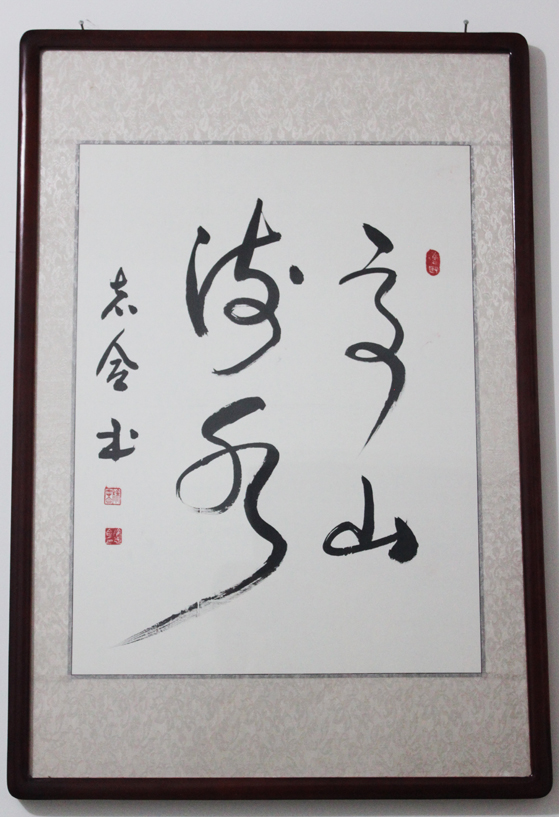 高山
流水
志念书